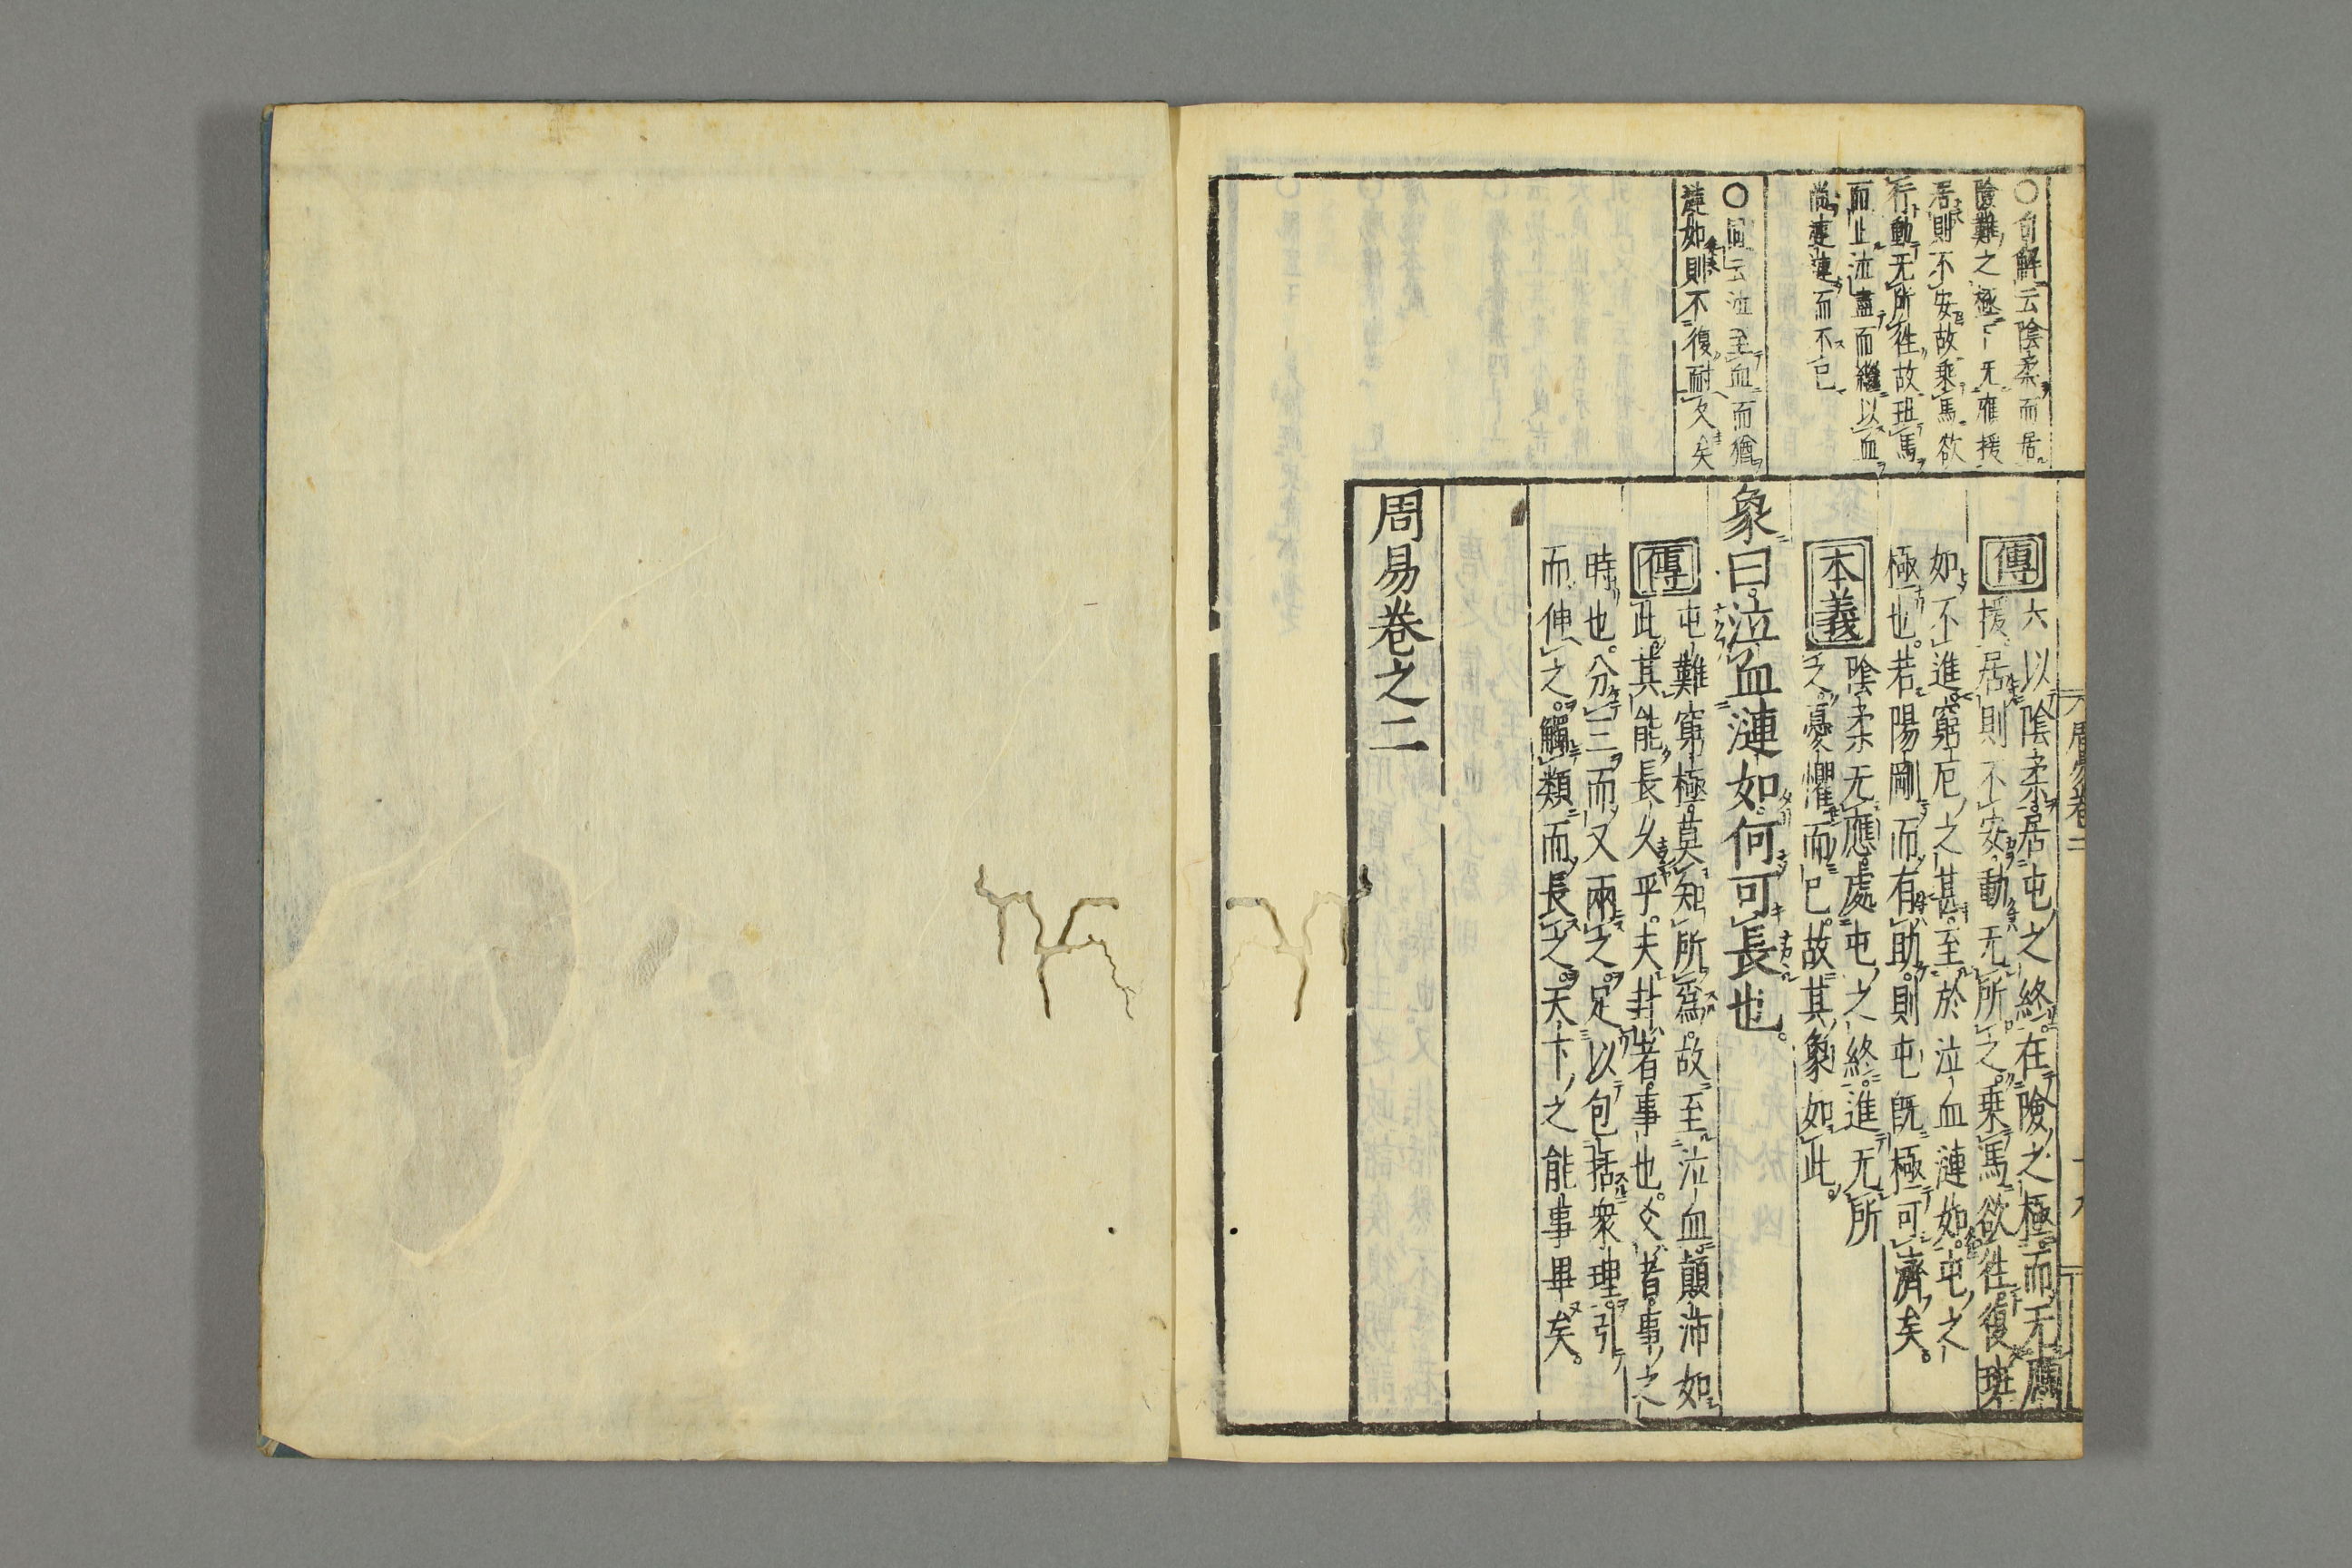 ○句解云陰柔而居
險難之極上无應援
居則不安故乘馬欲
行動无所徃故班馬
而止泣盡而繼以血
尚漣漣而不已
○同云泣至血而猶
漣如則不復耐久矣
傳六以陰柔居屯之終在險之極而无應
援居則不安動无所之乘馬欲徃復班
如不進窮厄之甚至於泣血漣如屯之
極也。若陽剛而有助則屯既極可濟矣。
本義陰柔无應處屯之終進无所
之憂懼而已故其象如此
象曰泣血漣如何可長也。
傳屯難窮極莫知所爲。故至泣血顛沛如
此其能長久乎。夫卦者事也。爻者事之
時也。分三而又兩之。足以包括衆理引
而伸之。觸類而長之。天下之能事畢矣。
周易卷之二
周易卷二